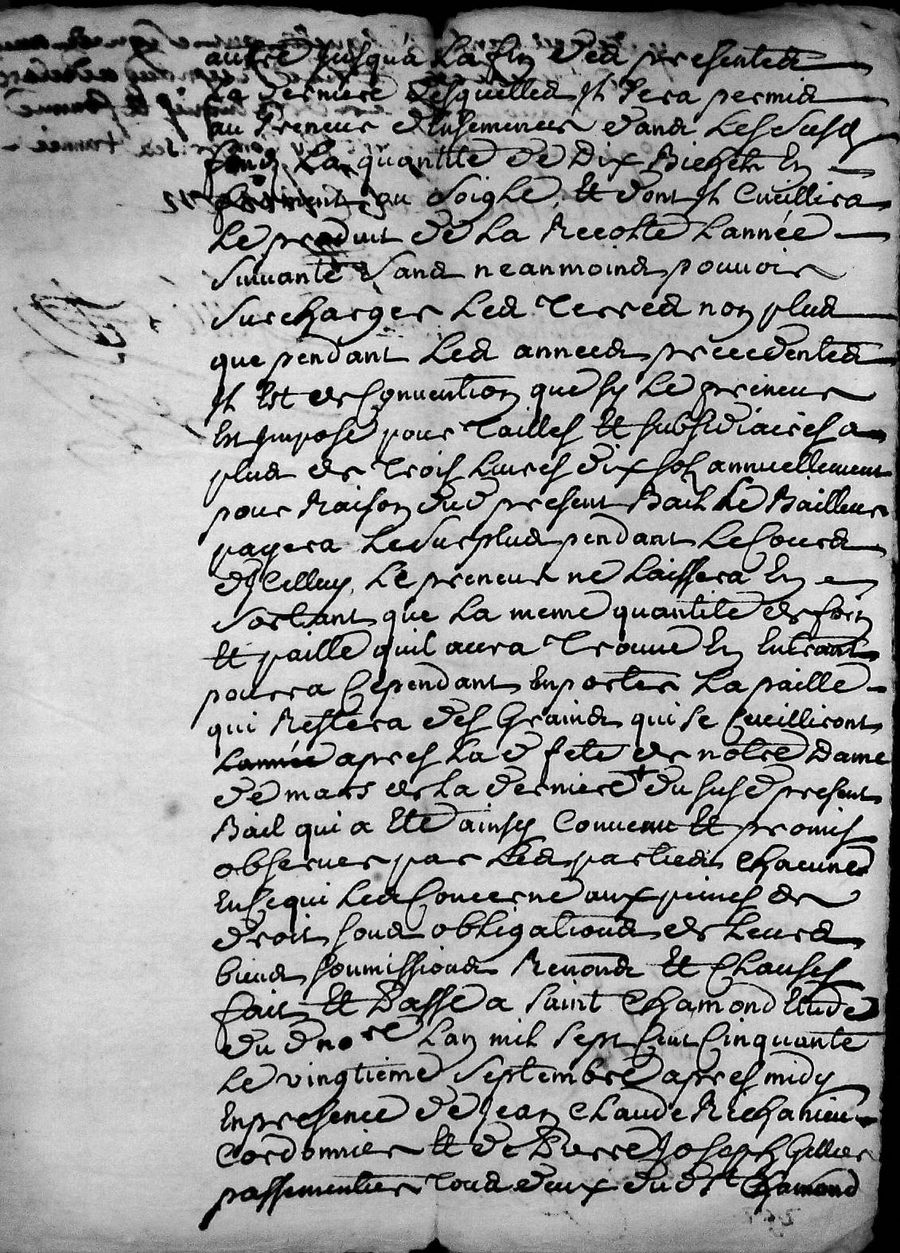 autre jusqu'a La fin des presentes
La derniere desquelles Il sera permis
au Preneur d'ensemencer dans Les Susd
fonds La quantité de Dix Bichets En
froment ou Soigle, Et dont Il Cueillira
Le produit de La Recolte Lannée
Suivante Sans neanmoins pouvoir
Surcharger Les Terres non plus
que pendant Les années précedentes
Il Est de Convention que sy Le preneur
Est Imposé pour Tailles Et subsidiaires a
plus de Trois Livres dix sols annuellement
pour Raison dud present Bail Le Bailleur
payera Le Surplus pendant Le Cours
d'Icelluy, Le preneur ne Laissera En
Sortant que La meme quantité de foin
Et paille quil aura Trouvé En Entrant
pourra Cependant Enporter La paille
qui Restera des Grains qui se Cueilliront
Lannée apres La d fete de notre Dame
de mars de La derniere du susd present
Bail qui a Eté ainsy Convenu Et promis
observer par Les parties Chacune
En Ce qui Les Concerne aux peines de
droit sous obligations de Leurs
biens soumissions Renons Et Clauses
fait Et Passé a Saint Chamond Etude
du d no.re Lan mil sept Cent Cinquante
Le vingtieme Septembre apres midy
En presence de Jean Claude
Cordonnier Et de Pierre Joseph Gillier
passementier Tous deux du d St Chamond